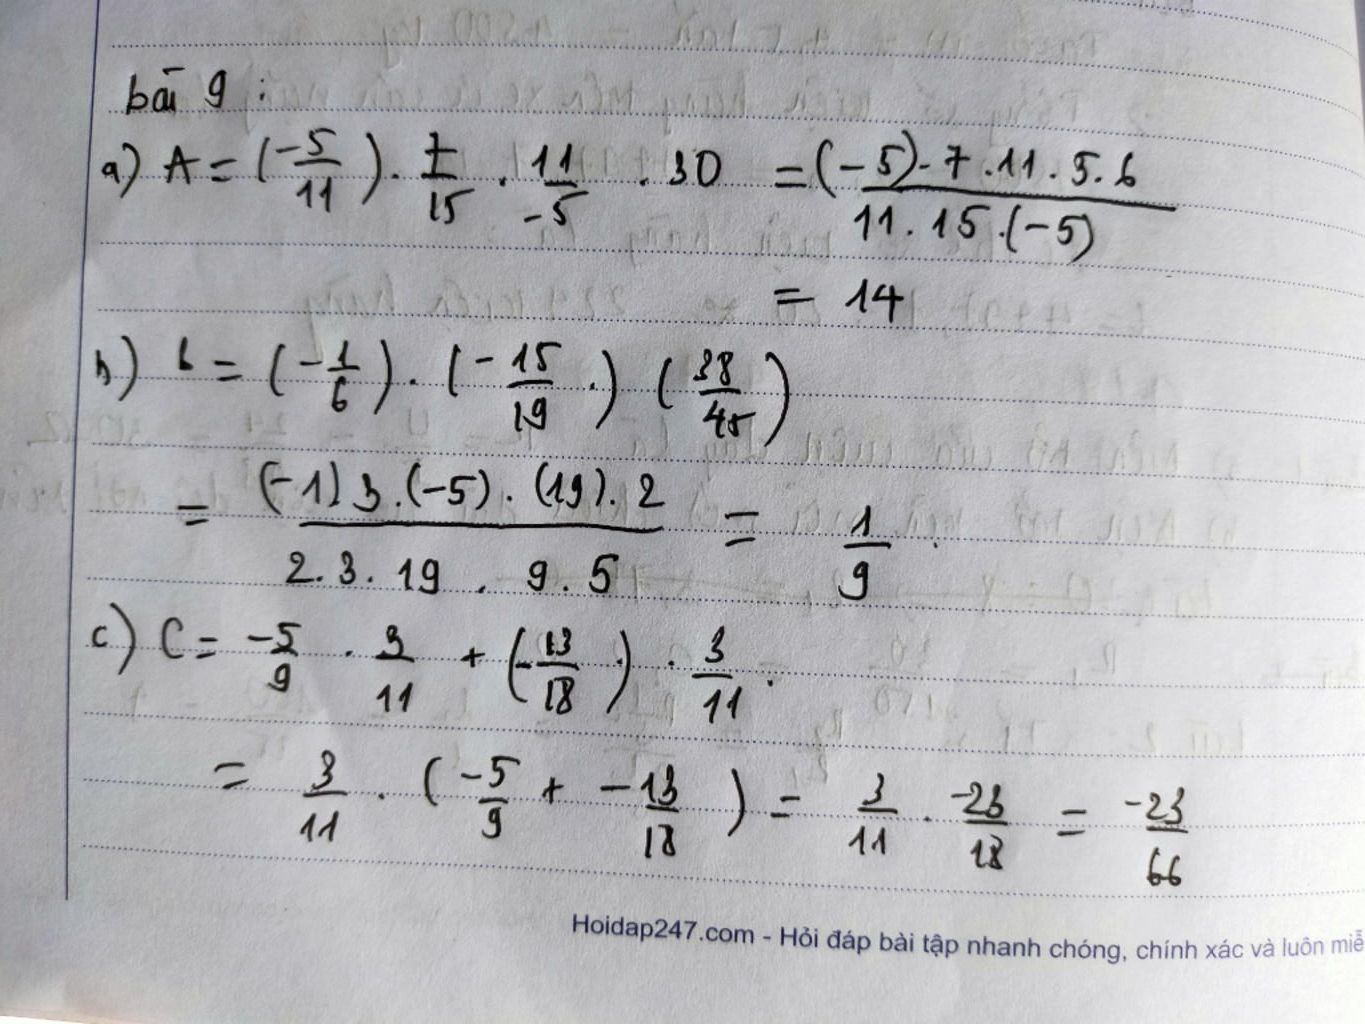 bài 9 :
a) A = (-5/11) . 7/15 . 11/-5 . 30 = (-5) . 7 . 11 . 5 . 6 / 11 . 15 . (-5)
= 14
b) b = (-1/6) . (-15/19 .) (38/45)
= (-1) 3 . (-5) . (19) . 2 / 2 . 3 . 19 . 9 . 5 = 1/9 .
c) C = -5/9 . 3/11 + (-13/18) . 3/11 .
= 3/11 . (-5/9 + -13/18) = 3/11 . -23/18 = -23/66
Hoidap247.com - Hỏi đáp bài tập nhanh chóng, chính xác và luôn miễ